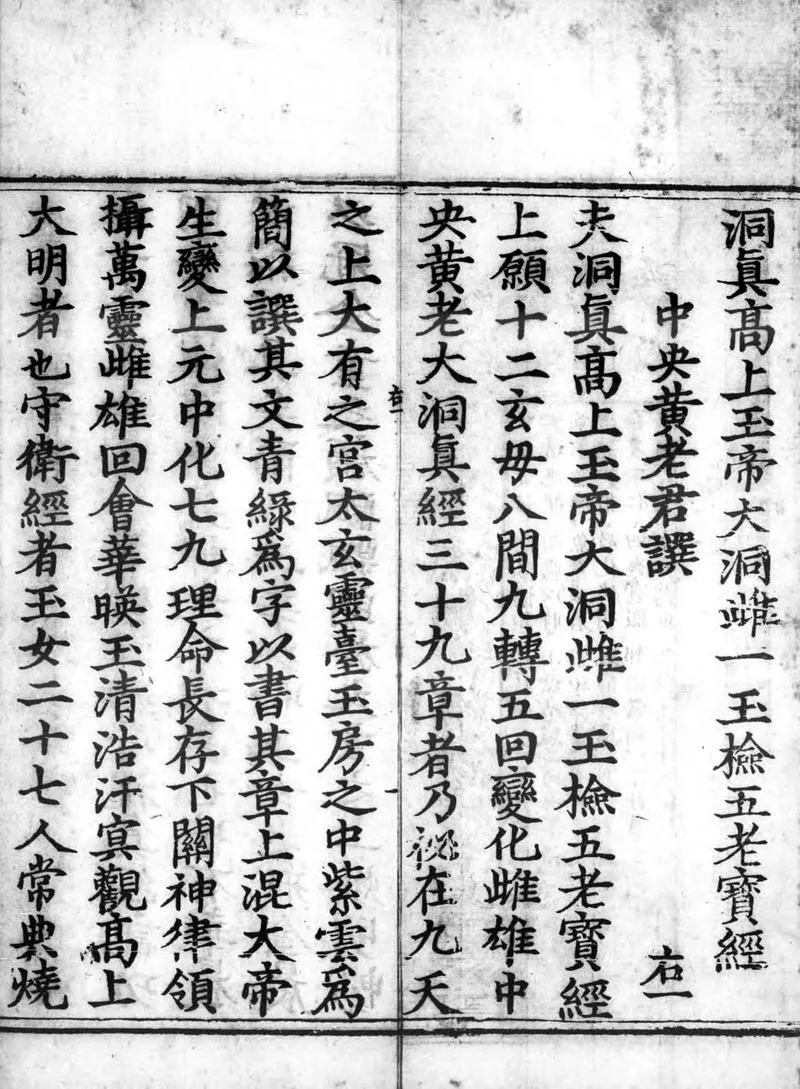 洞眞髙上玉帝大洞雌一玉檢五老寳經
中央黄老君譔　右一
夫洞眞髙上玉帝大洞雌一玉檢五老寳經
上願十二玄毋八間九轉五回變化雌雄中
央黄老大洞眞經三十九章者乃祕在九天
右一
之上大有之宫太玄靈臺玉房之中紫雲爲
簡以譔其文青緑爲字以書其章上混大帝
生變上元中化七九理命長存下關神律領
攝萬靈雌雄回會華暎玉清浩汗㝠觀髙上
大明者也守衛經者玉女二十七人常典燒